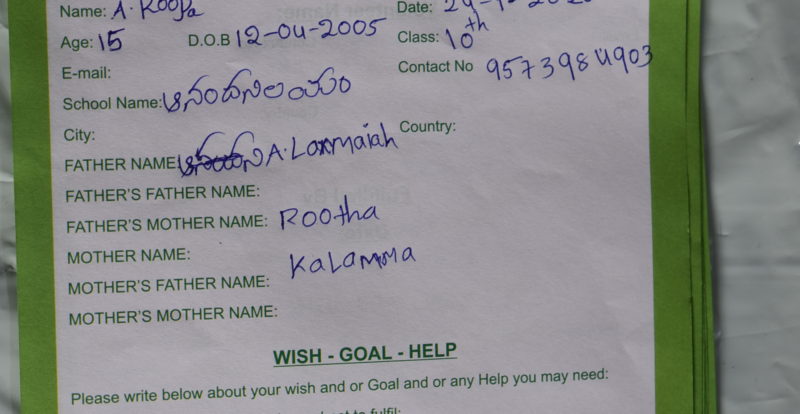 Name: A. Roopa Date:
Age: 15 D.O.B 12-04-2005 Class: 10th
E-mail: Contact No 9573984903
School Name: ఆనందనిలయం
City: Country:
FATHER NAME A. Laxmaiah
FATHER'S FATHER NAME:
FATHER'S MOTHER NAME: Rootha
MOTHER NAME:
MOTHER'S FATHER NAME: Kalamma
MOTHER'S MOTHER NAME:
WISH - GOAL - HELP
Please write below about your wish and or Goal and or any Help you may need: